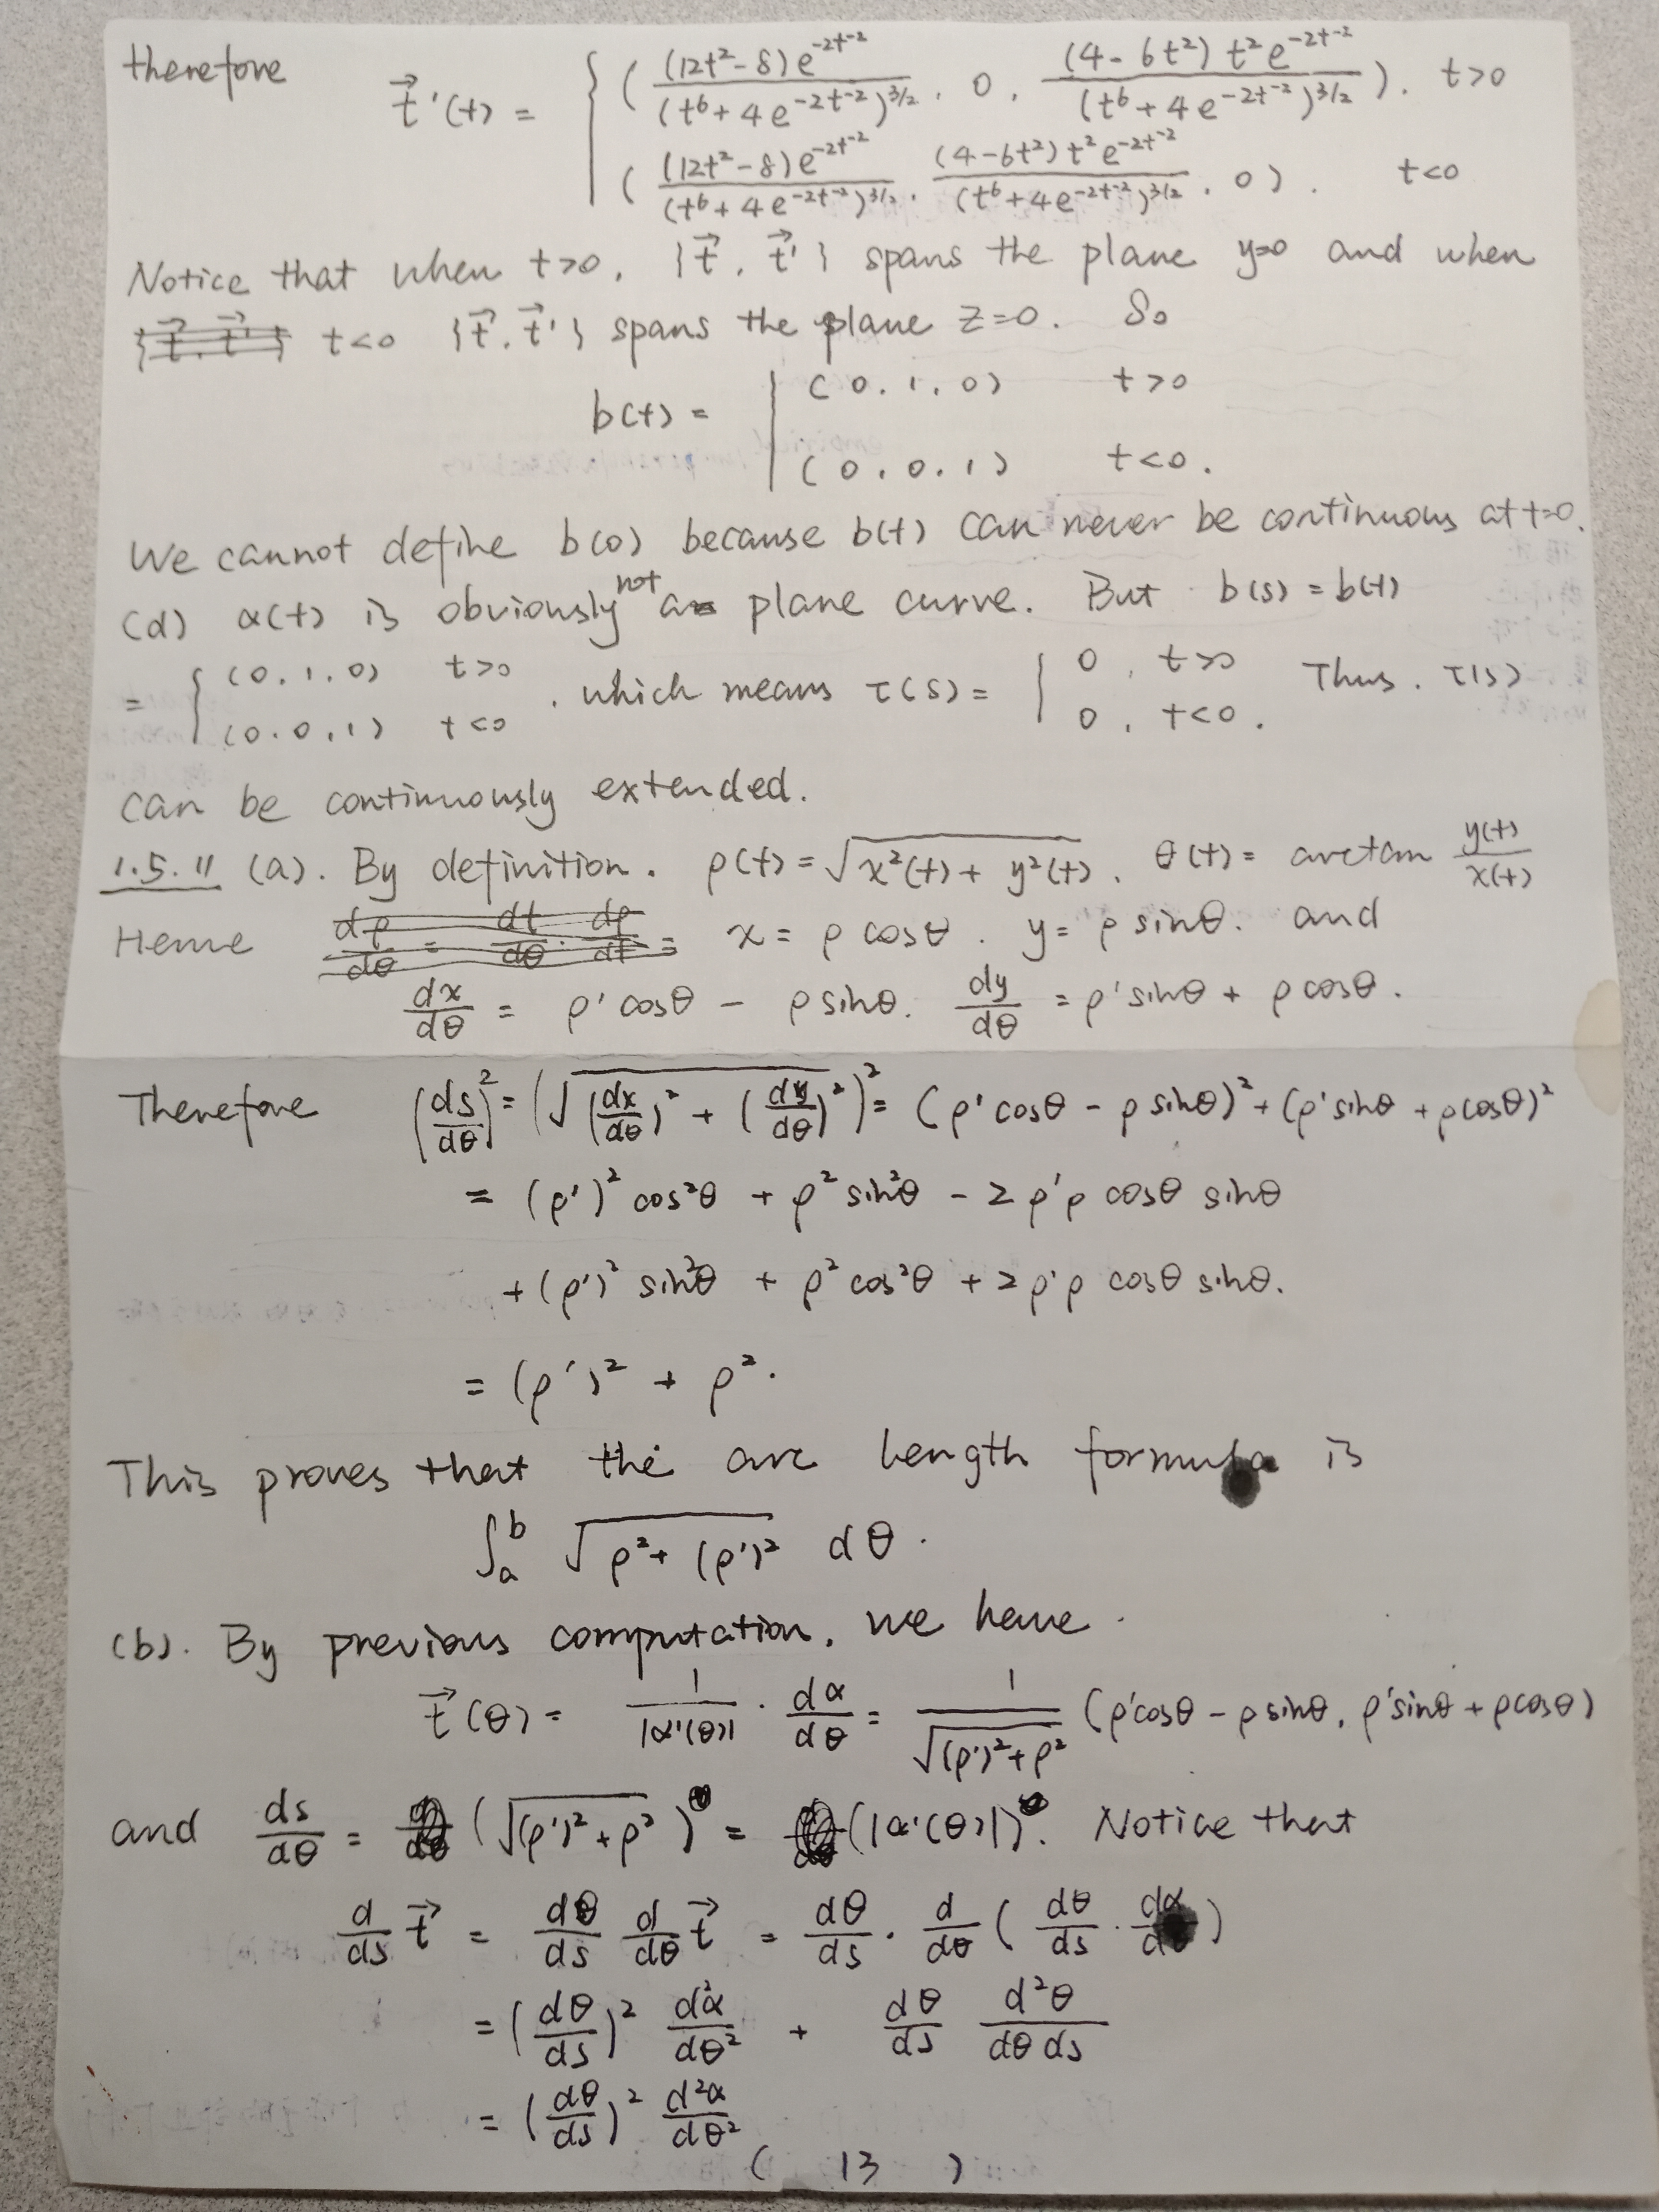 therefore t⃗'(t) = { ( (12t²-8)e^{-2t^{-2}} / (t⁶+4e^{-2t^{-2}})^{3/2} , 0 , (4-6t²)t²e^{-2t^{-2}} / (t⁶+4e^{-2t^{-2}})^{3/2} ). t>0
( (12t²-8)e^{-2t^{-2}} / (t⁶+4e^{-2t^{-2}})^{3/2} , (4-6t²)t²e^{-2t^{-2}} / (t⁶+4e^{-2t^{-2}})^{3/2} , 0 ). t<0
Notice that when t>0, {t⃗, t⃗'} spans the plane y=0 and when
t<0 {t⃗, t⃗'} spans the plane z=0. So
b(t) = { (0, 1, 0) t>0
(0, 0, 1) t<0.
We cannot define b(0) because b(t) can never be continuous at t=0.
(d) α(t) is obviously not a plane curve. But b(s) = b(t)
= { (0, 1, 0) t>0 , (0, 0, 1) t<0 , which means τ(s) = { 0 , t>0 0 , t<0. Thus, τ(s)
can be continuously extended.
1.5.11 (a). By definition. ρ(t) = √(x²(t) + y²(t)) , θ(t) = arctan y(t)/x(t)
Hence x = ρ cosθ. y = ρ sinθ. and
dx/dθ = ρ' cosθ - ρ sinθ. dy/dθ = ρ' sinθ + ρ cosθ.
Therefore (ds/dθ)² = (√((dx/dθ)² + (dy/dθ)²))² = (ρ' cosθ - ρ sinθ)² + (ρ' sinθ + ρ cosθ)²
= (ρ')² cos²θ + ρ² sin²θ - 2ρ'ρ cosθ sinθ
+ (ρ')² sin²θ + ρ² cos²θ + 2ρ'ρ cosθ sinθ.
= (ρ')² + ρ².
This proves that the arc length formula is
∫_a^b √(ρ² + (ρ')²) dθ.
(b). By previous computation, we have
t⃗(θ) = 1/|α'(θ)| · dα/dθ = 1/√((ρ')²+ρ²) (ρ' cosθ - ρ sinθ, ρ' sinθ + ρ cosθ)
and ds/dθ = (√((ρ')²+ρ²)) = (|α'(θ)|). Notice that
d/ds t⃗ = dθ/ds d/dθ t⃗ = dθ/ds · d/dθ ( dθ/ds · dα/dθ )
= (dθ/ds)² d²α/dθ² + dθ/ds d²θ/dθds
= (dθ/ds)² d²α/dθ²
( 13 )